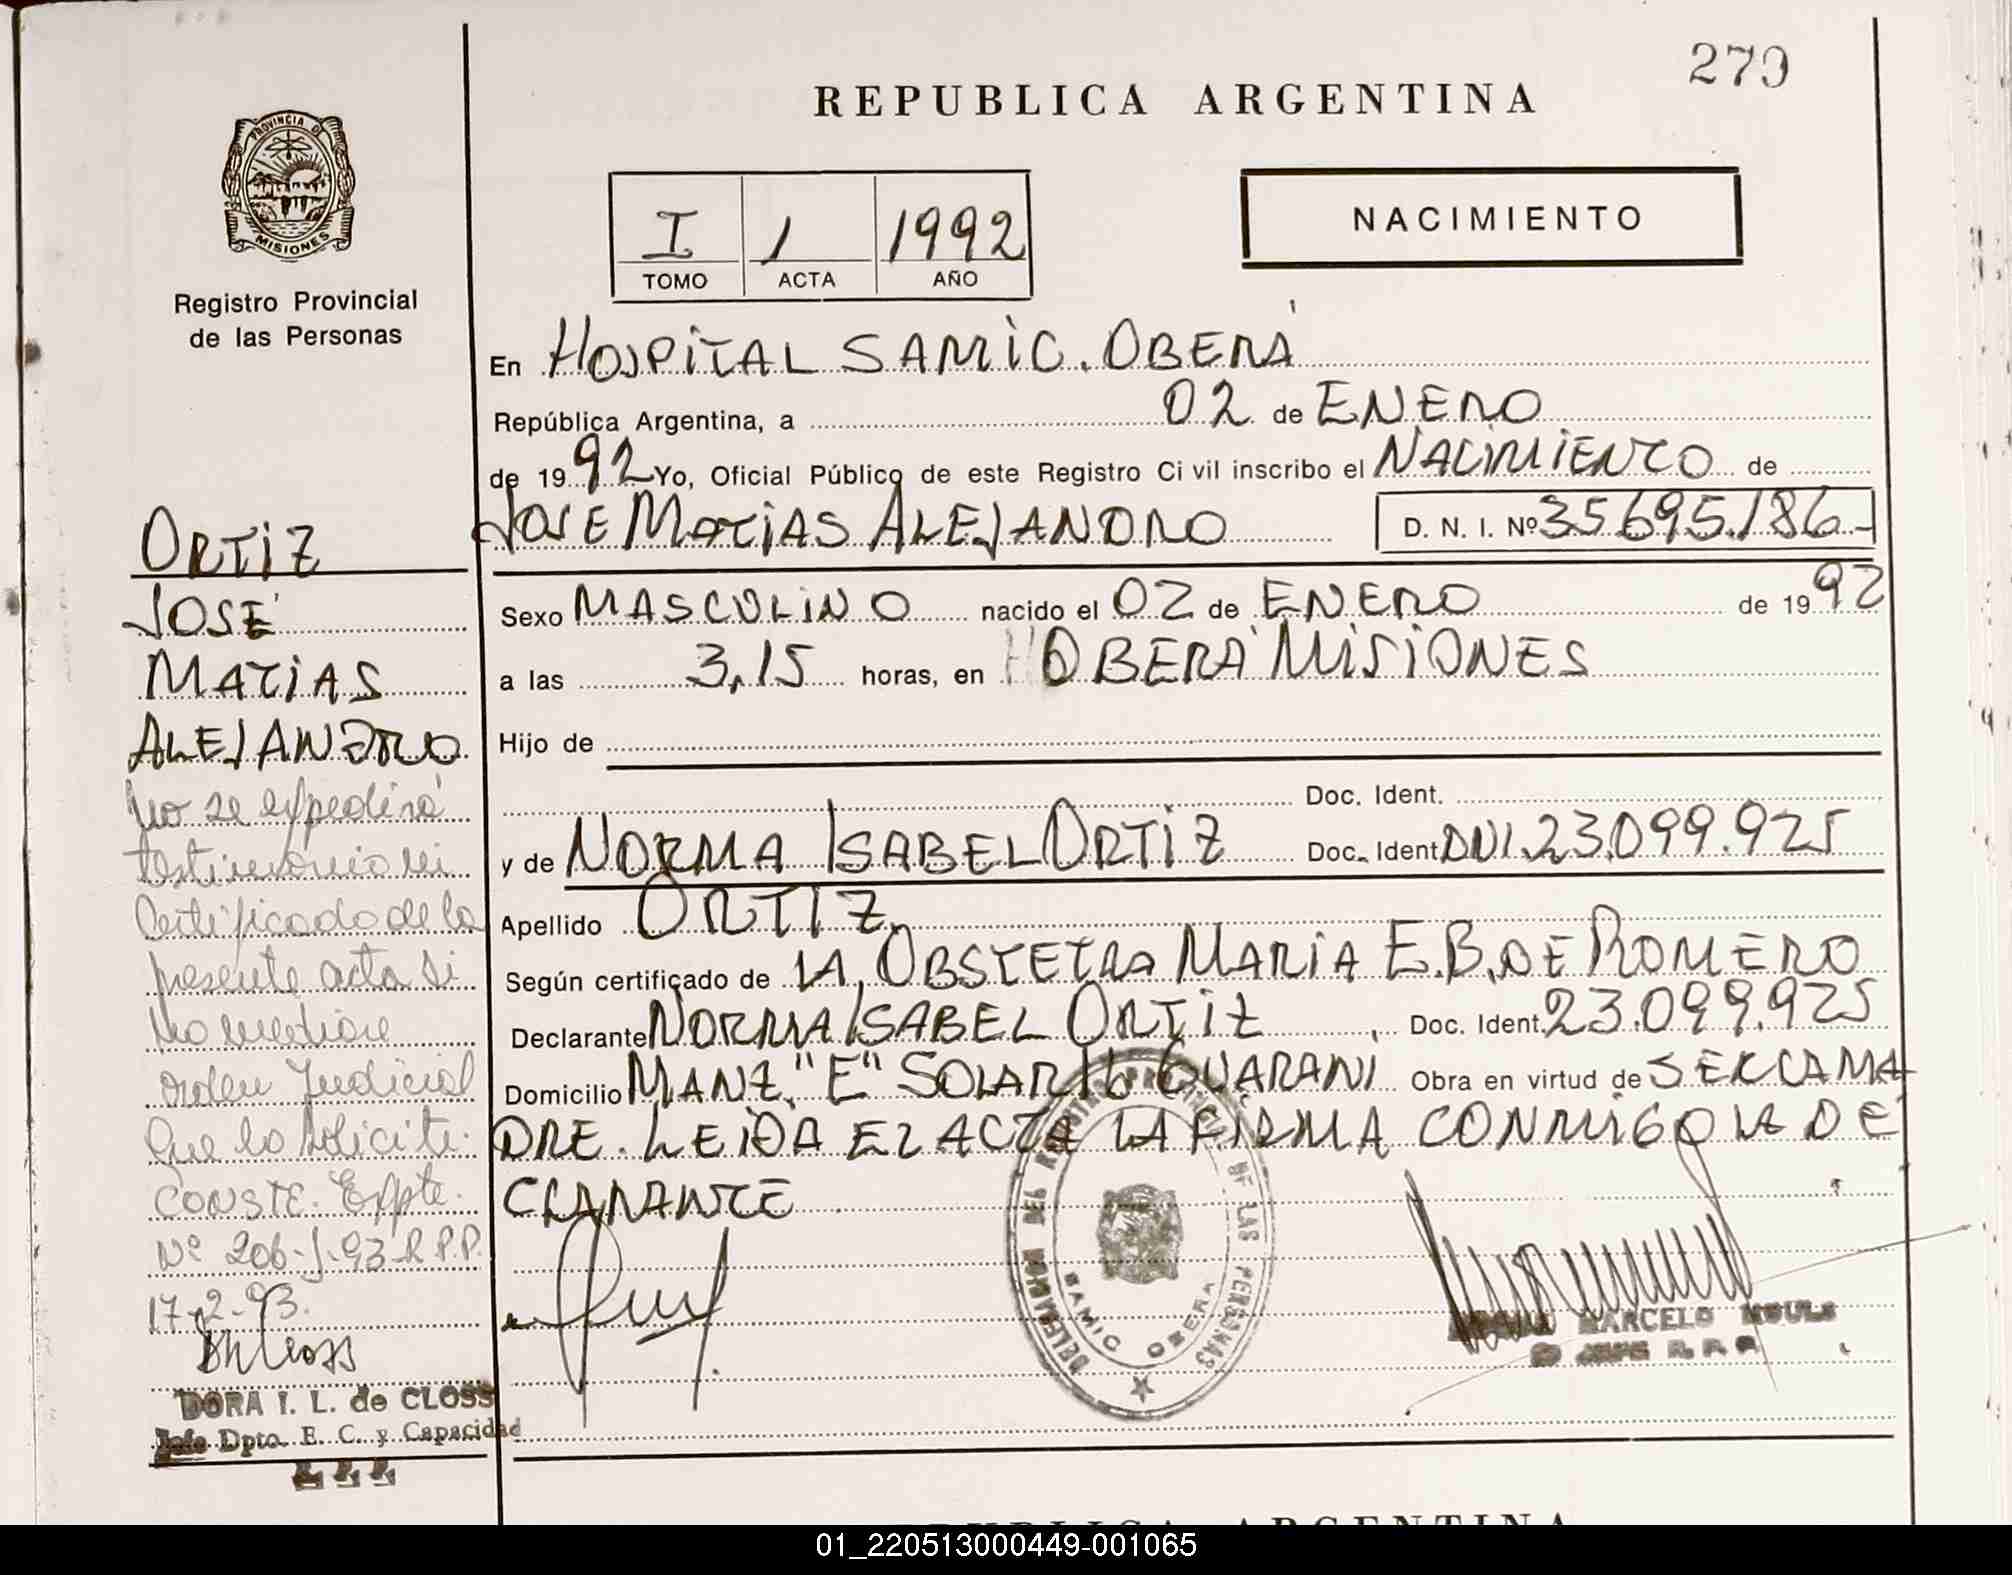 270
REPUBLICA ARGENTINA
PROVINCIA DE
MISIONES
Registro Provincial
de las Personas
I 1 1992
TOMO ACTA AÑO
NACIMIENTO
En HOSPITAL SAMIC. OBERÁ
República Argentina, a 02 de ENERO
de 1992 Yo, Oficial Público de este Registro Civil inscribo el NACIMIENTO de
JOSE MATIAS ALEJANDRO D. N. I. Nº 35.695.186.-
Sexo MASCULINO nacido el 02 de ENERO de 1992
a las 3,15 horas, en OBERÁ MISIONES
Hijo de
Doc. Ident.
y de NORMA ISABEL ORTIZ Doc. Ident. DNI.23.099.925
Apellido ORTIZ
Según certificado de LA OBSTETRA MARIA E.B. DE ROMERO
Declarante NORMA ISABEL ORTIZ, Doc. Ident. 23.099.925
Domicilio MANZ. "E" SOLAR 16 GUARANI Obra en virtud de SER LA MA
DRE. LEIDA EL ACTA LA FIRMA CONMIGO LA DE
CLARANTE
ORTIZ
JOSÉ
MATIAS
ALEJANDRO
No se expedirá
testimonio ni
Certificado de la
presente acta si
no mediare
orden Judicial
que lo solicite.
CONSTE. Expte.
Nº 206-J-93-R.P.P.
17-2-93.
DORA I. L. de CLOSS
Jefe Dpto. E. C. y Capacidad
DELEGACION DEL REGISTRO PROVINCIAL DE LAS PERSONAS
SAMIC OBERA
MARCELO
REPUBLICA ARGENTINA
01_220513000449-001065